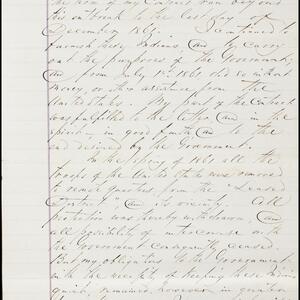 the term of my Contract ran beyond
this outbreak to the last day of
December 1861. I continued to
furnish these Indians, and to carry
out the purposes of the Government,
and from July 1st 1861 did so without
money, or other assistance from the
United States. My part of the Contract
was fulfilled to the letter and in the
spirit, in good faith, and to the
end designed by the Government.
In the Spring of 1861 all the
troops of the United States were removed
to remote quarters from the "Leased
District" and its vicinity. All
protection was thereby withdrawn, and
all possibility of intercourse with
the Government consequently ceased.
But my obligations to the Government
with the necessity of keeping these Indians
quiet, remained, however in